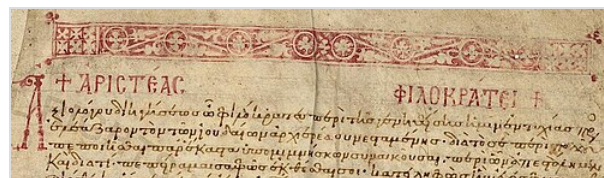 + ΑΡΙCΤΕΑC ΦΙΛΟΚΡΑΤΕΙ +
Ἀξιολόγου διηγήσεως ὦ φιλόκρατες περὶ τῆς γενηθείσης ἡμῖν ἐντυχίας πρὸς
ἐλεάζαρον τὸν τῶν ἰουδαίων ἀρχιερέα συνεσταμένης· διὰ τὸ σὲ περὶ
πεποιῆσθαι παρέκαστα ὑπομιμνήσκων συνακοῦσαι· περὶ ὧν ἀπεστάλημεν
καὶ διὰ τί· πεπείραμαι σαφῶς ἐκθέσθαι σοι·